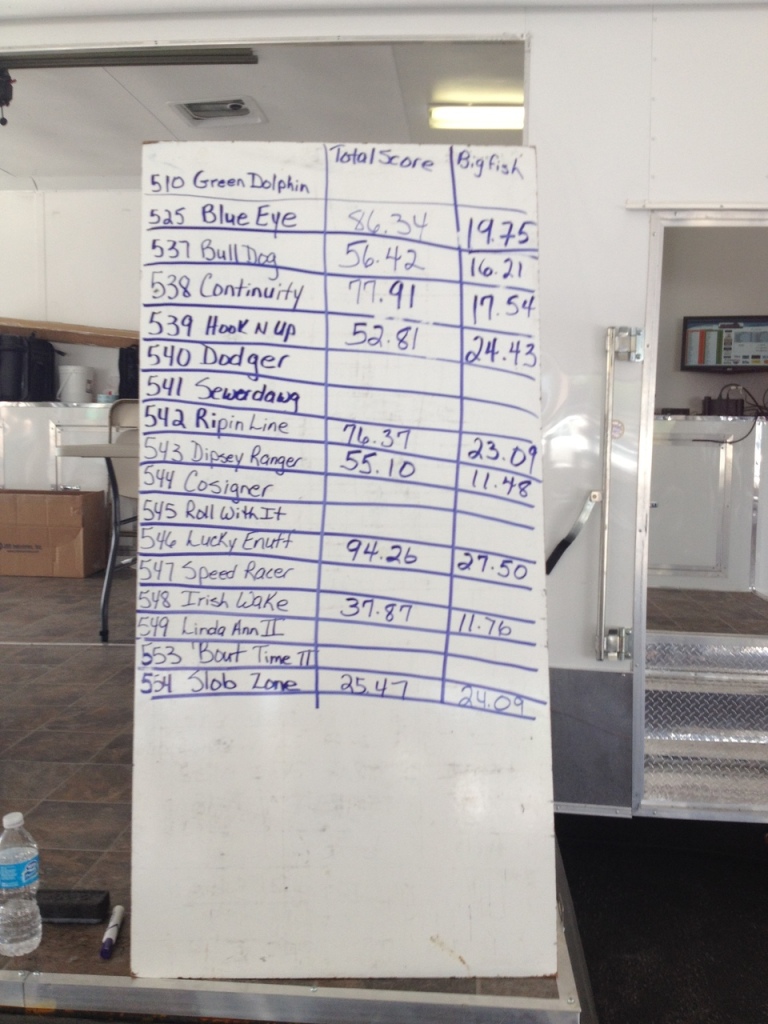 Total Score Big fish
510 Green Dolphin
525 Blue Eye 86.34 19.75
537 Bull Dog 56.42 16.21
538 Continuity 77.91 17.54
539 Hook N Up 52.81 24.43
540 Dodger
541 Sewerdawg
542 Ripin Line 76.37 23.09
543 Dipsey Ranger 55.10 11.48
544 Cosigner
545 Roll With It
546 Lucky Enuff 94.26 27.50
547 Speed Racer
548 Irish Wake 37.87 11.76
549 Linda Ann II
553 'Bout Time II
554 Slob Zone 25.47 24.09